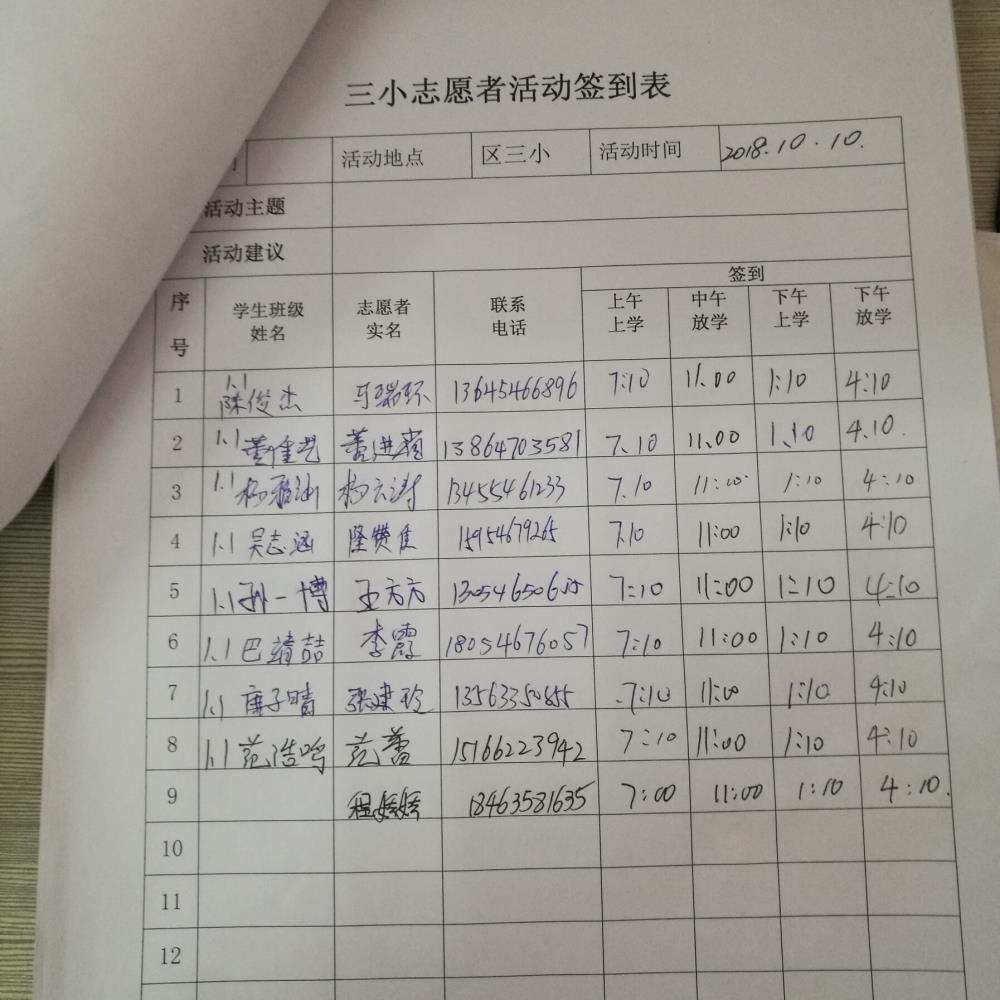 三小志愿者活动签到表
活动地点 区三小 活动时间 2018.10.10.
活动主题
活动建议
序号 学生班级姓名 志愿者实名 联系电话 签到
上午上学 中午放学 下午上学 下午放学
1 1.1 陈俊杰 马瑞环 13645466896 7:10 11:00 1:10 4:10
2 1.1 13864703581 7.10 11.00 1.10 4.10.
3 1.1 杨雅涵 杨云涛 13455461233 7.10 11:00 1:10 4:10
4 1.1 吴志远 隆赞佳 15954679265 7:10 11:00 1:10 4:10
5 1.1 孙一博 王方方 7:10 11:00 1:10 4:10
6 1.1 巴靖喆 李霞 18054676057 7:10 11:00 1:10 4:10
7 1.1 唐子晴 张建玲 13563350855 7:10 11:00 1:10 4:10
8 1.1 范浩鸣 范蕾 15166223942 7:10 11:00 1:10 4:10
9 程婷婷 18463581635 7:00 11:00 1:10 4:10.
10
11
12